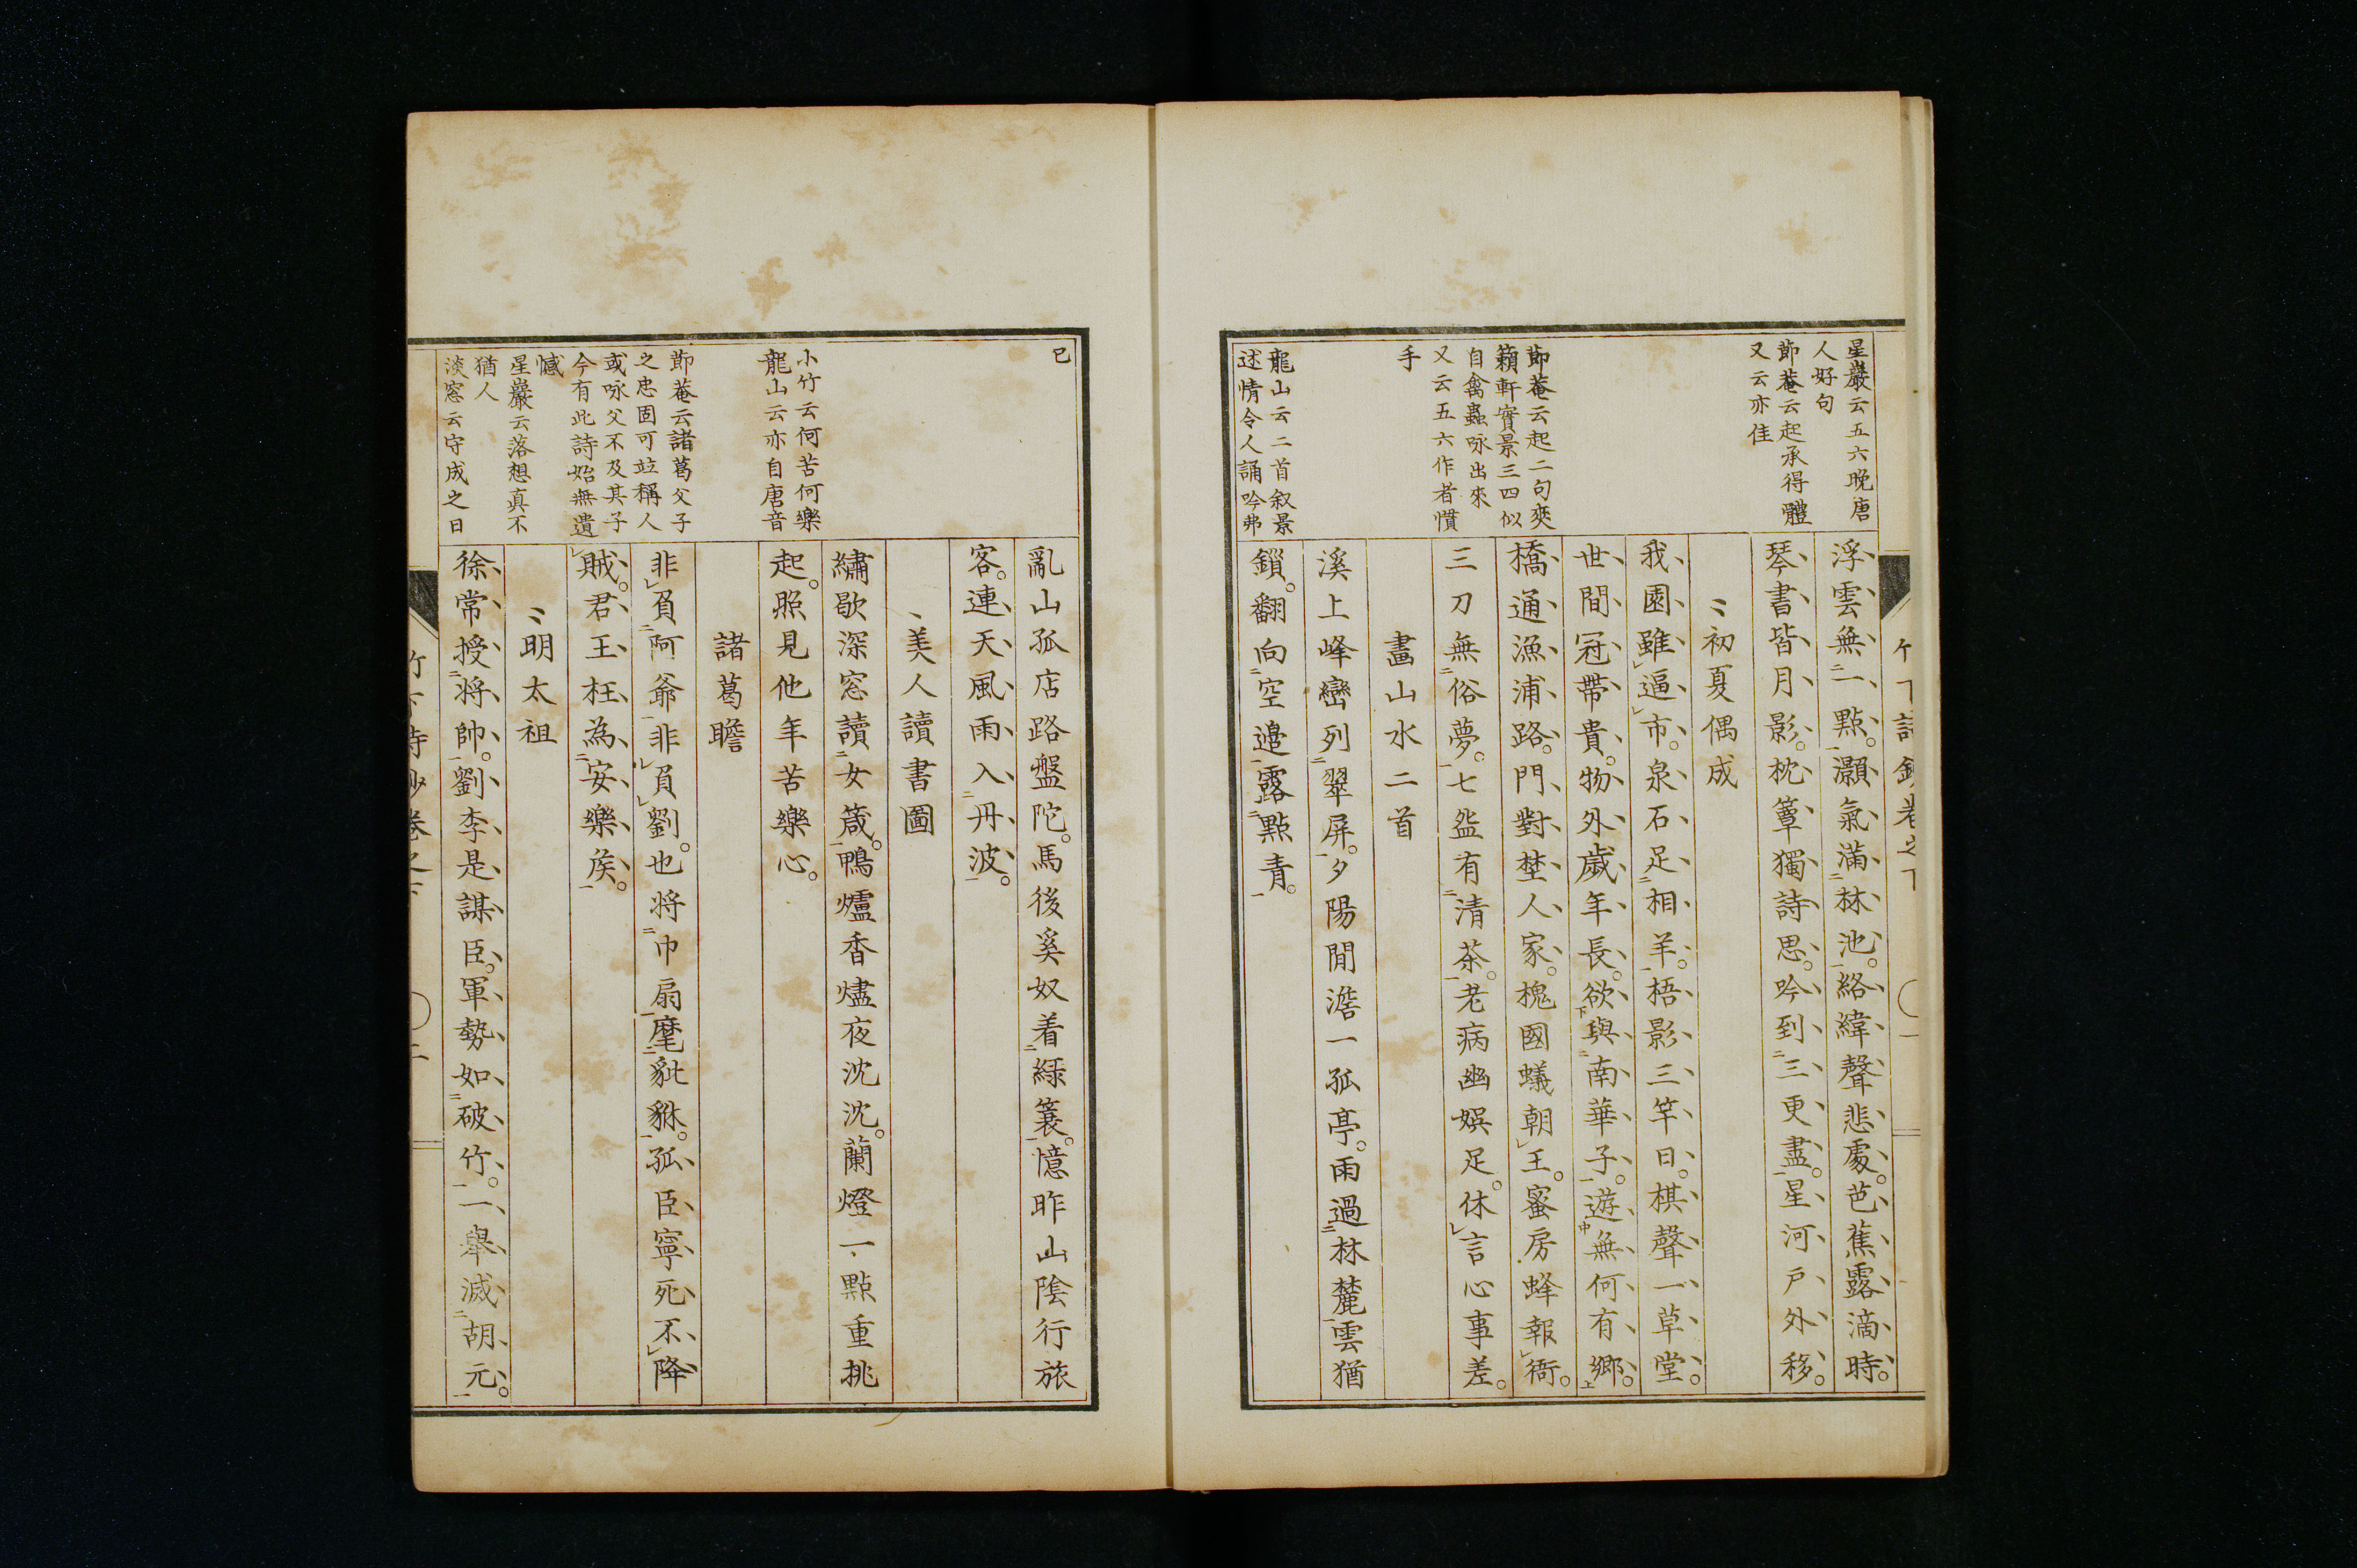 星巖云五六晚唐
人好句
節菴云起承得體
又云亦佳
節菴云起二句爽
籟軒實景三四似
自禽蟲咏出來
又云五六作者慣
手
龍山云二首叙景
述情令人誦吟弗
浮雲無一點灝氣滿林池絡緯聲悲處芭蕉露滴時
琴書皆月影枕簟獨詩思吟到三更盡星河戶外移
初夏偶成
我園雖逼市泉石足相羊梧影三竿日棋聲一草堂
世間冠帶貴物外歲年長欲與南華子遊無何有鄉
橋通漁浦路門對埜人家槐國蟻朝王蜜房蜂報衙
三刀無俗夢七盌有清茶老病幽娛足休言心事差
畫山水二首
溪上峰巒列翠屏夕陽閒澹一孤亭雨過林麓雲猶
鎖翻向空邊露點青
已
小竹云何苦何樂
龍山云亦自唐音
節菴云諸葛父子
之忠固可竝稱人
或咏父不及其子
今有此詩始無遺
憾
星巖云落想真不
猶人
淡窓云守成之日
亂山孤店路盤陀馬後奚奴着綠簑憶昨山陰行旅
客連天風雨入丹波
美人讀書圖
繡歇深窓讀女箴鴨爐香燼夜沈沈蘭燈一點重挑
起照見他年苦樂心
諸葛瞻
非負阿爺非負劉也將巾扇麾貔貅孤臣寧死不降
賊君王枉為安樂侯
明太祖
徐常授將帥劉李是謀臣軍勢如破竹一舉滅胡元